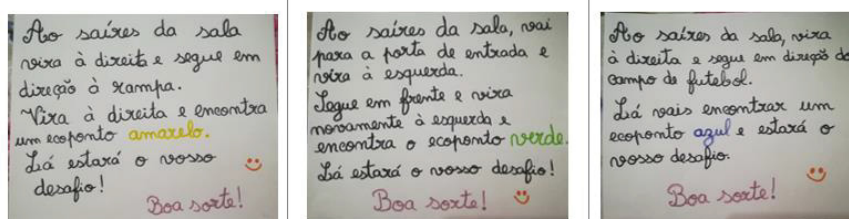 Ao saíres da sala
vira à direita e segue em
direção à rampa.
Vira à direita e encontra
um ecoponto amarelo.
Lá estará o vosso
desafio!
Boa sorte!
Ao saíres da sala, vai
para a porta de entrada e
vira à esquerda.
Segue em frente e vira
novamente à esquerda e
encontra o ecoponto verde.
Lá estará o vosso desafio!
Boa sorte!
Ao saíres da sala, vira
à direita e segue em direção do
campo de futebol.
Lá vais encontrar um
ecoponto azul e estará o
vosso desafio.
Boa sorte!